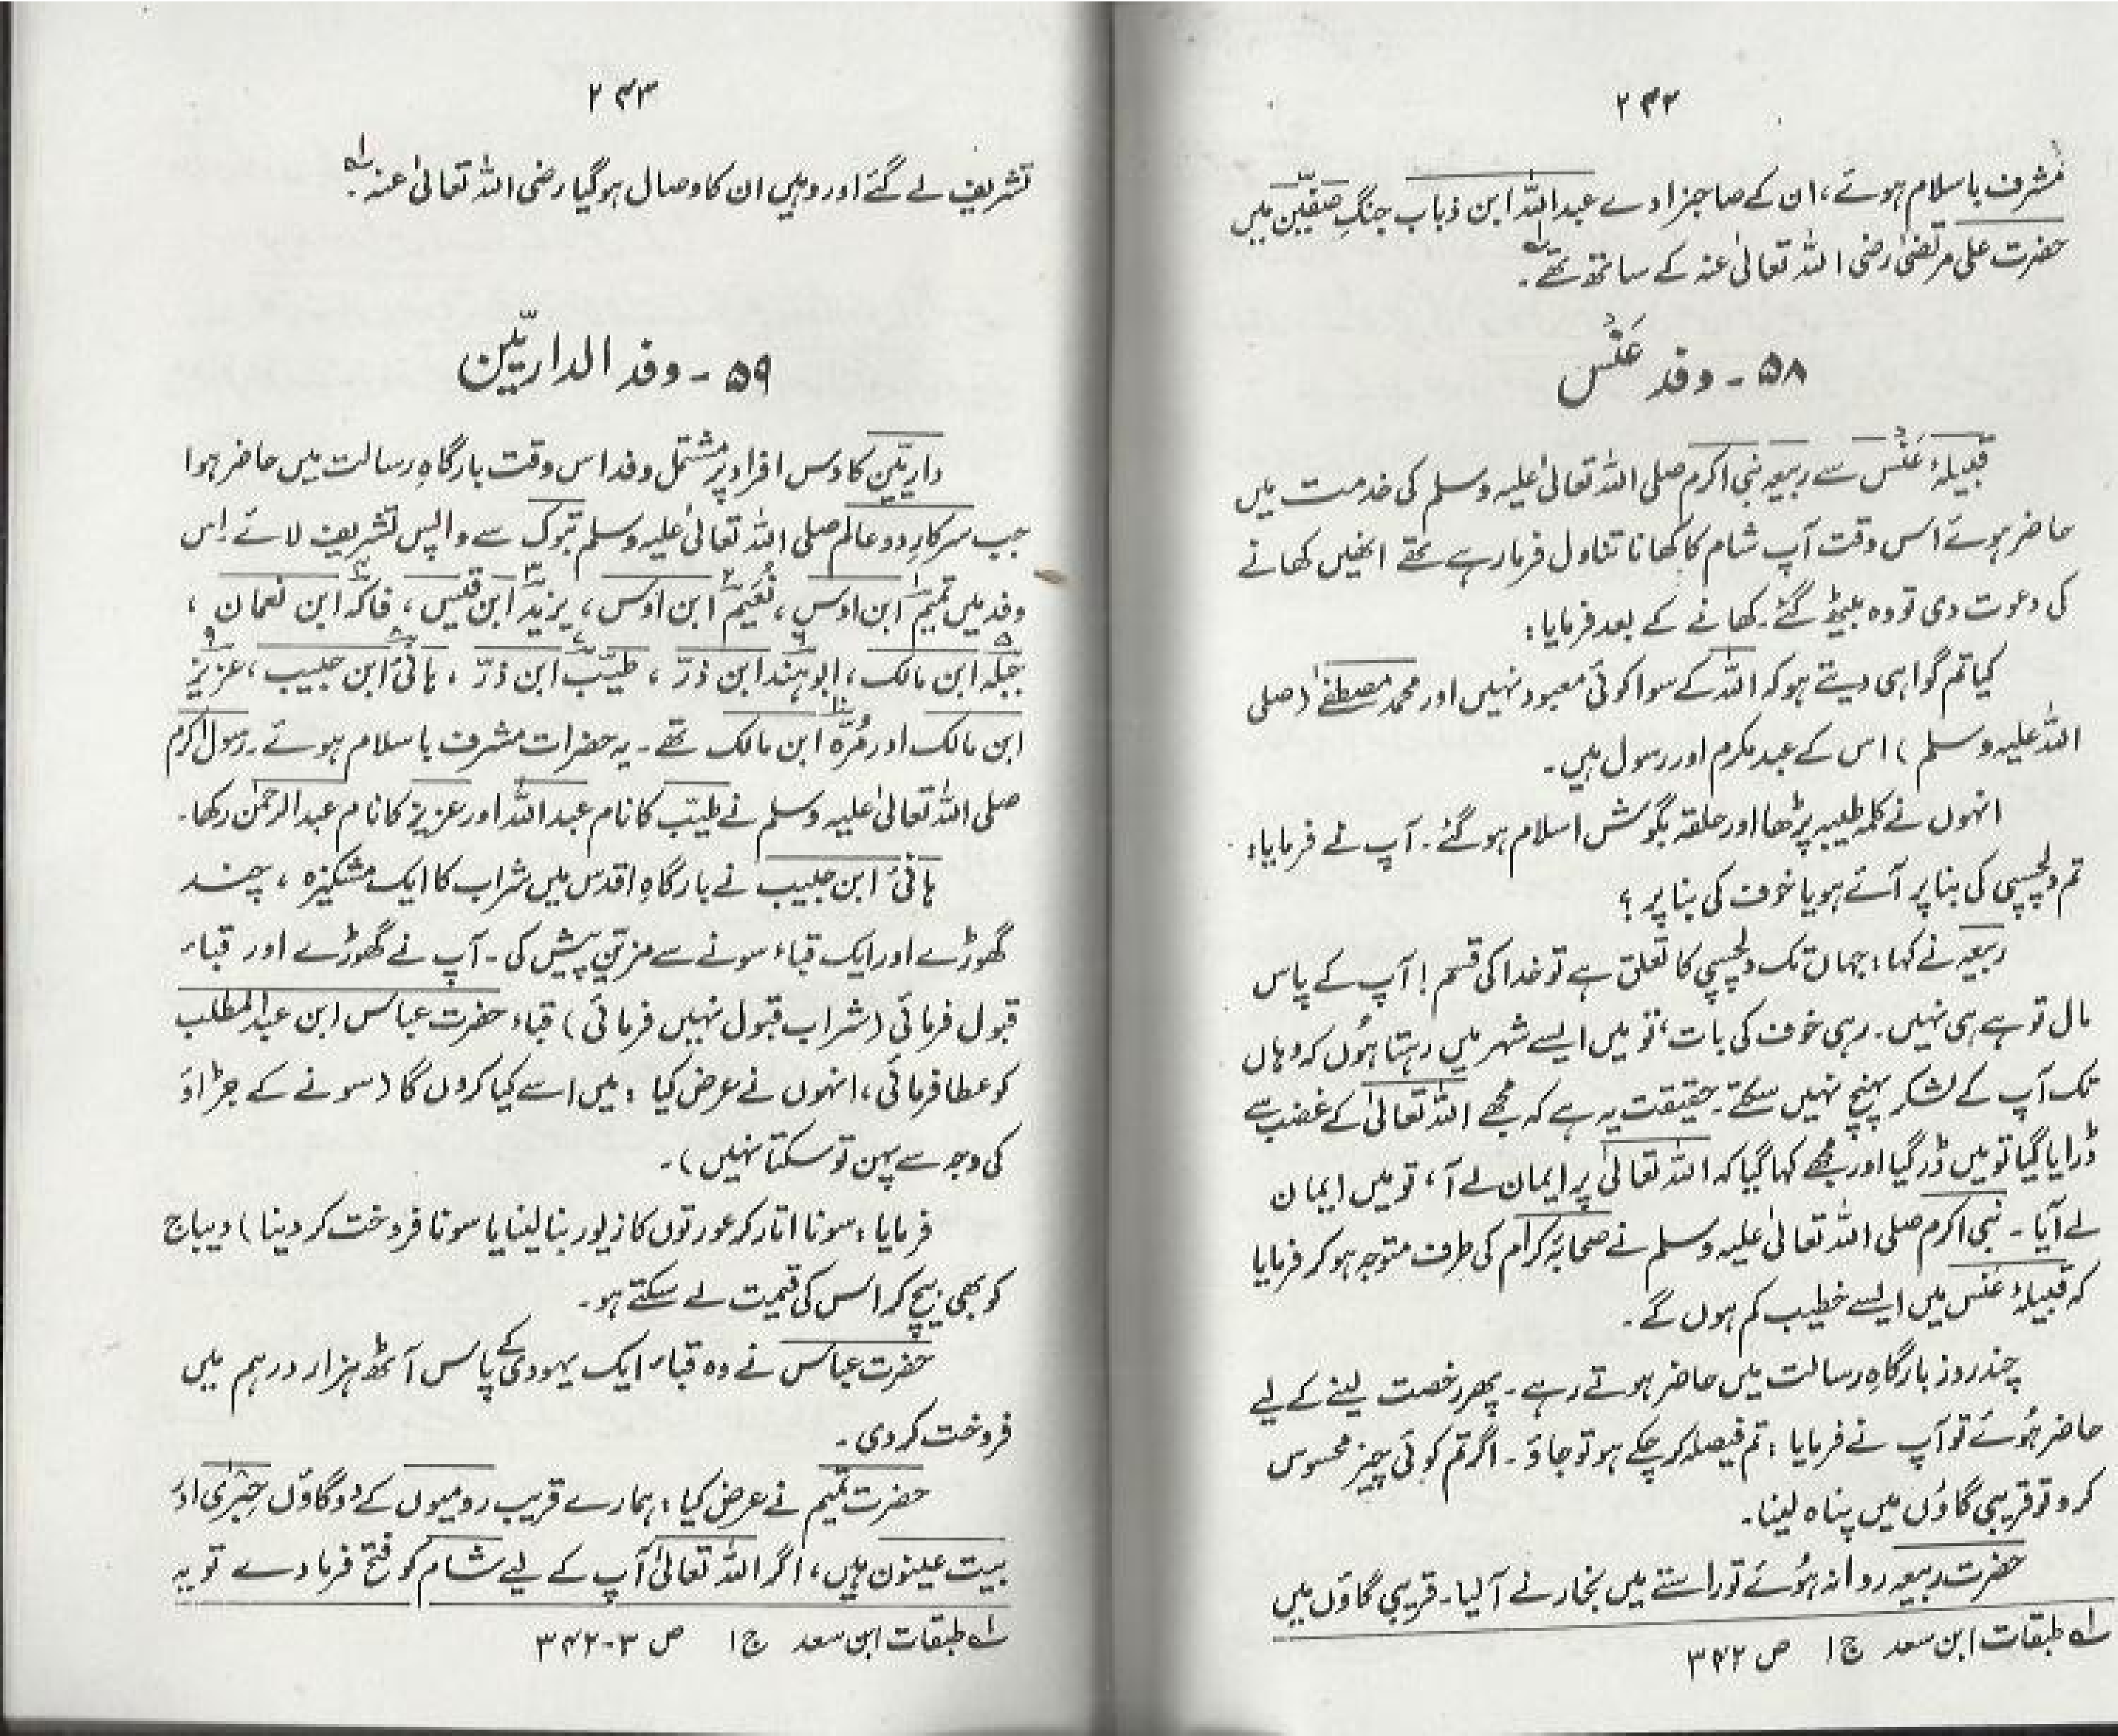 ۲۴۲
مشرف باسلام ہوئے، ان کے صاحبزادے عبداللہ ابن ذباب جنگِ صفّین میں
حضرت علی مرتضیٰ رضی اللہ تعالیٰ عنہ کے ساتھ تھے لہ۔
۵۸ - وفد عَنْس
قبیلۂ عَنْس سے ربیعہ نبی اکرم صلی اللہ تعالیٰ علیہ وسلم کی خدمت میں
حاضر ہوئے اس وقت آپ شام کا کھانا تناول فرما رہے تھے انھیں کھانے
کی دعوت دی تو وہ بیٹھ گئے۔ کھانے کے بعد فرمایا:
کیا تم گواہی دیتے ہو کہ اللہ کے سوا کوئی معبود نہیں اور محمد مصطفےٰ (صلی
اللہ علیہ وسلم) اس کے عبدِ مکرم اور رسول ہیں۔
انہوں نے کلمہ طیبہ پڑھا اور حلقہ بگوش اسلام ہو گئے۔ آپ نے فرمایا:
تم دلچسپی کی بنا پر آئے ہو یا خوف کی بنا پر؟
ربیعہ نے کہا: جہاں تک دلچسپی کا تعلق ہے تو خدا کی قسم! آپ کے پاس
مال تو ہے ہی نہیں۔ رہی خوف کی بات، تو میں ایسے شہر میں رہتا ہوں کہ وہاں
تک آپ کے لشکر پہنچ نہیں سکتے۔ حقیقت یہ ہے کہ مجھے اللہ تعالیٰ کے غضب سے
ڈرایا گیا تو میں ڈر گیا اور مجھے کہا گیا کہ اللہ تعالیٰ پر ایمان لے آ، تو میں ایمان
لے آیا۔ نبی اکرم صلی اللہ تعالیٰ علیہ وسلم نے صحابۂ کرام کی طرف متوجہ ہو کر فرمایا
کہ قبیلۂ عنس میں ایسے خطیب کم ہوں گے۔
چند روز بارگاہِ رسالت میں حاضر ہوتے رہے۔ پھر رخصت لینے کے لیے
حاضر ہُوئے تو آپ نے فرمایا: تم فیصلہ کر چکے ہو تو جاؤ۔ اگر تم کوئی چیز محسوس
کرو تو قریبی گاؤں میں پناہ لینا۔
حضرت ربیعہ روانہ ہُوئے تو راستے میں بخار نے آ لیا۔ قریبی گاؤں میں
لہ طبقات ابن سعد ج ۱ ص ۳۴۲
۲۴۳
تشریف لے گئے اور وہیں ان کا وصال ہو گیا رضی اللہ تعالیٰ عنہ لہ۔
۵۹ - وفد الداریّین
داریّین کا دس افراد پر مشتمل وفد اس وقت بارگاہِ رسالت میں حاضر ہوا
جب سرکارِ دو عالم صلی اللہ تعالیٰ علیہ وسلم تبوک سے واپس تشریف لائے۔ اس
وفد میں تمیم۱ ابن اوس، نُعیم۲ ابن اوس، یزید۳ ابن قیس، فاکہ۴ ابن نعمان،
جبلہ۵ ابن مالک، ابو ہند۶ ابن ذرّ، طیّب۷ ابن ذرّ، ہانیٔ۸ ابن حبیب، عزیز۹
ابن مالک اور مُرّہ۱۰ ابن مالک تھے۔ یہ حضرات مشرف باسلام ہوئے۔ رسول اکرم
صلی اللہ تعالیٰ علیہ وسلم نے طیّب کا نام عبداللہ اور عزیز کا نام عبدالرحمٰن رکھا۔
ہانیٔ ابن حبیب نے بارگاہِ اقدس میں شراب کا ایک مشکیزہ، چند
گھوڑے اور ایک قباء سونے سے مزیّن پیش کی۔ آپ نے گھوڑے اور قباء
قبول فرمائی (شراب قبول نہیں فرمائی) قباء حضرت عباس ابن عبدالمطلب
کو عطا فرمائی، انہوں نے عرض کیا: میں اسے کیا کروں گا (سونے کے جڑاؤ
کی وجہ سے پہن تو سکتا نہیں)۔
فرمایا: سونا اتار کر عورتوں کا زیور بنا لینا یا سونا فروخت کر دینا) دیباج
کو بھی بیچ کر اس کی قیمت لے سکتے ہو۔
حضرت عباس نے وہ قباء ایک یہودی کے پاس آٹھ ہزار درہم میں
فروخت کر دی۔
حضرت تمیم نے عرض کیا: ہمارے قریب رومیوں کے دو گاؤں حِبْرٰی اور
بیت عینون ہیں، اگر اللہ تعالیٰ آپ کے لیے شام کو فتح فرما دے تو یہ
لہ طبقات ابن سعد ج ۱ ص ۳-۳۴۲